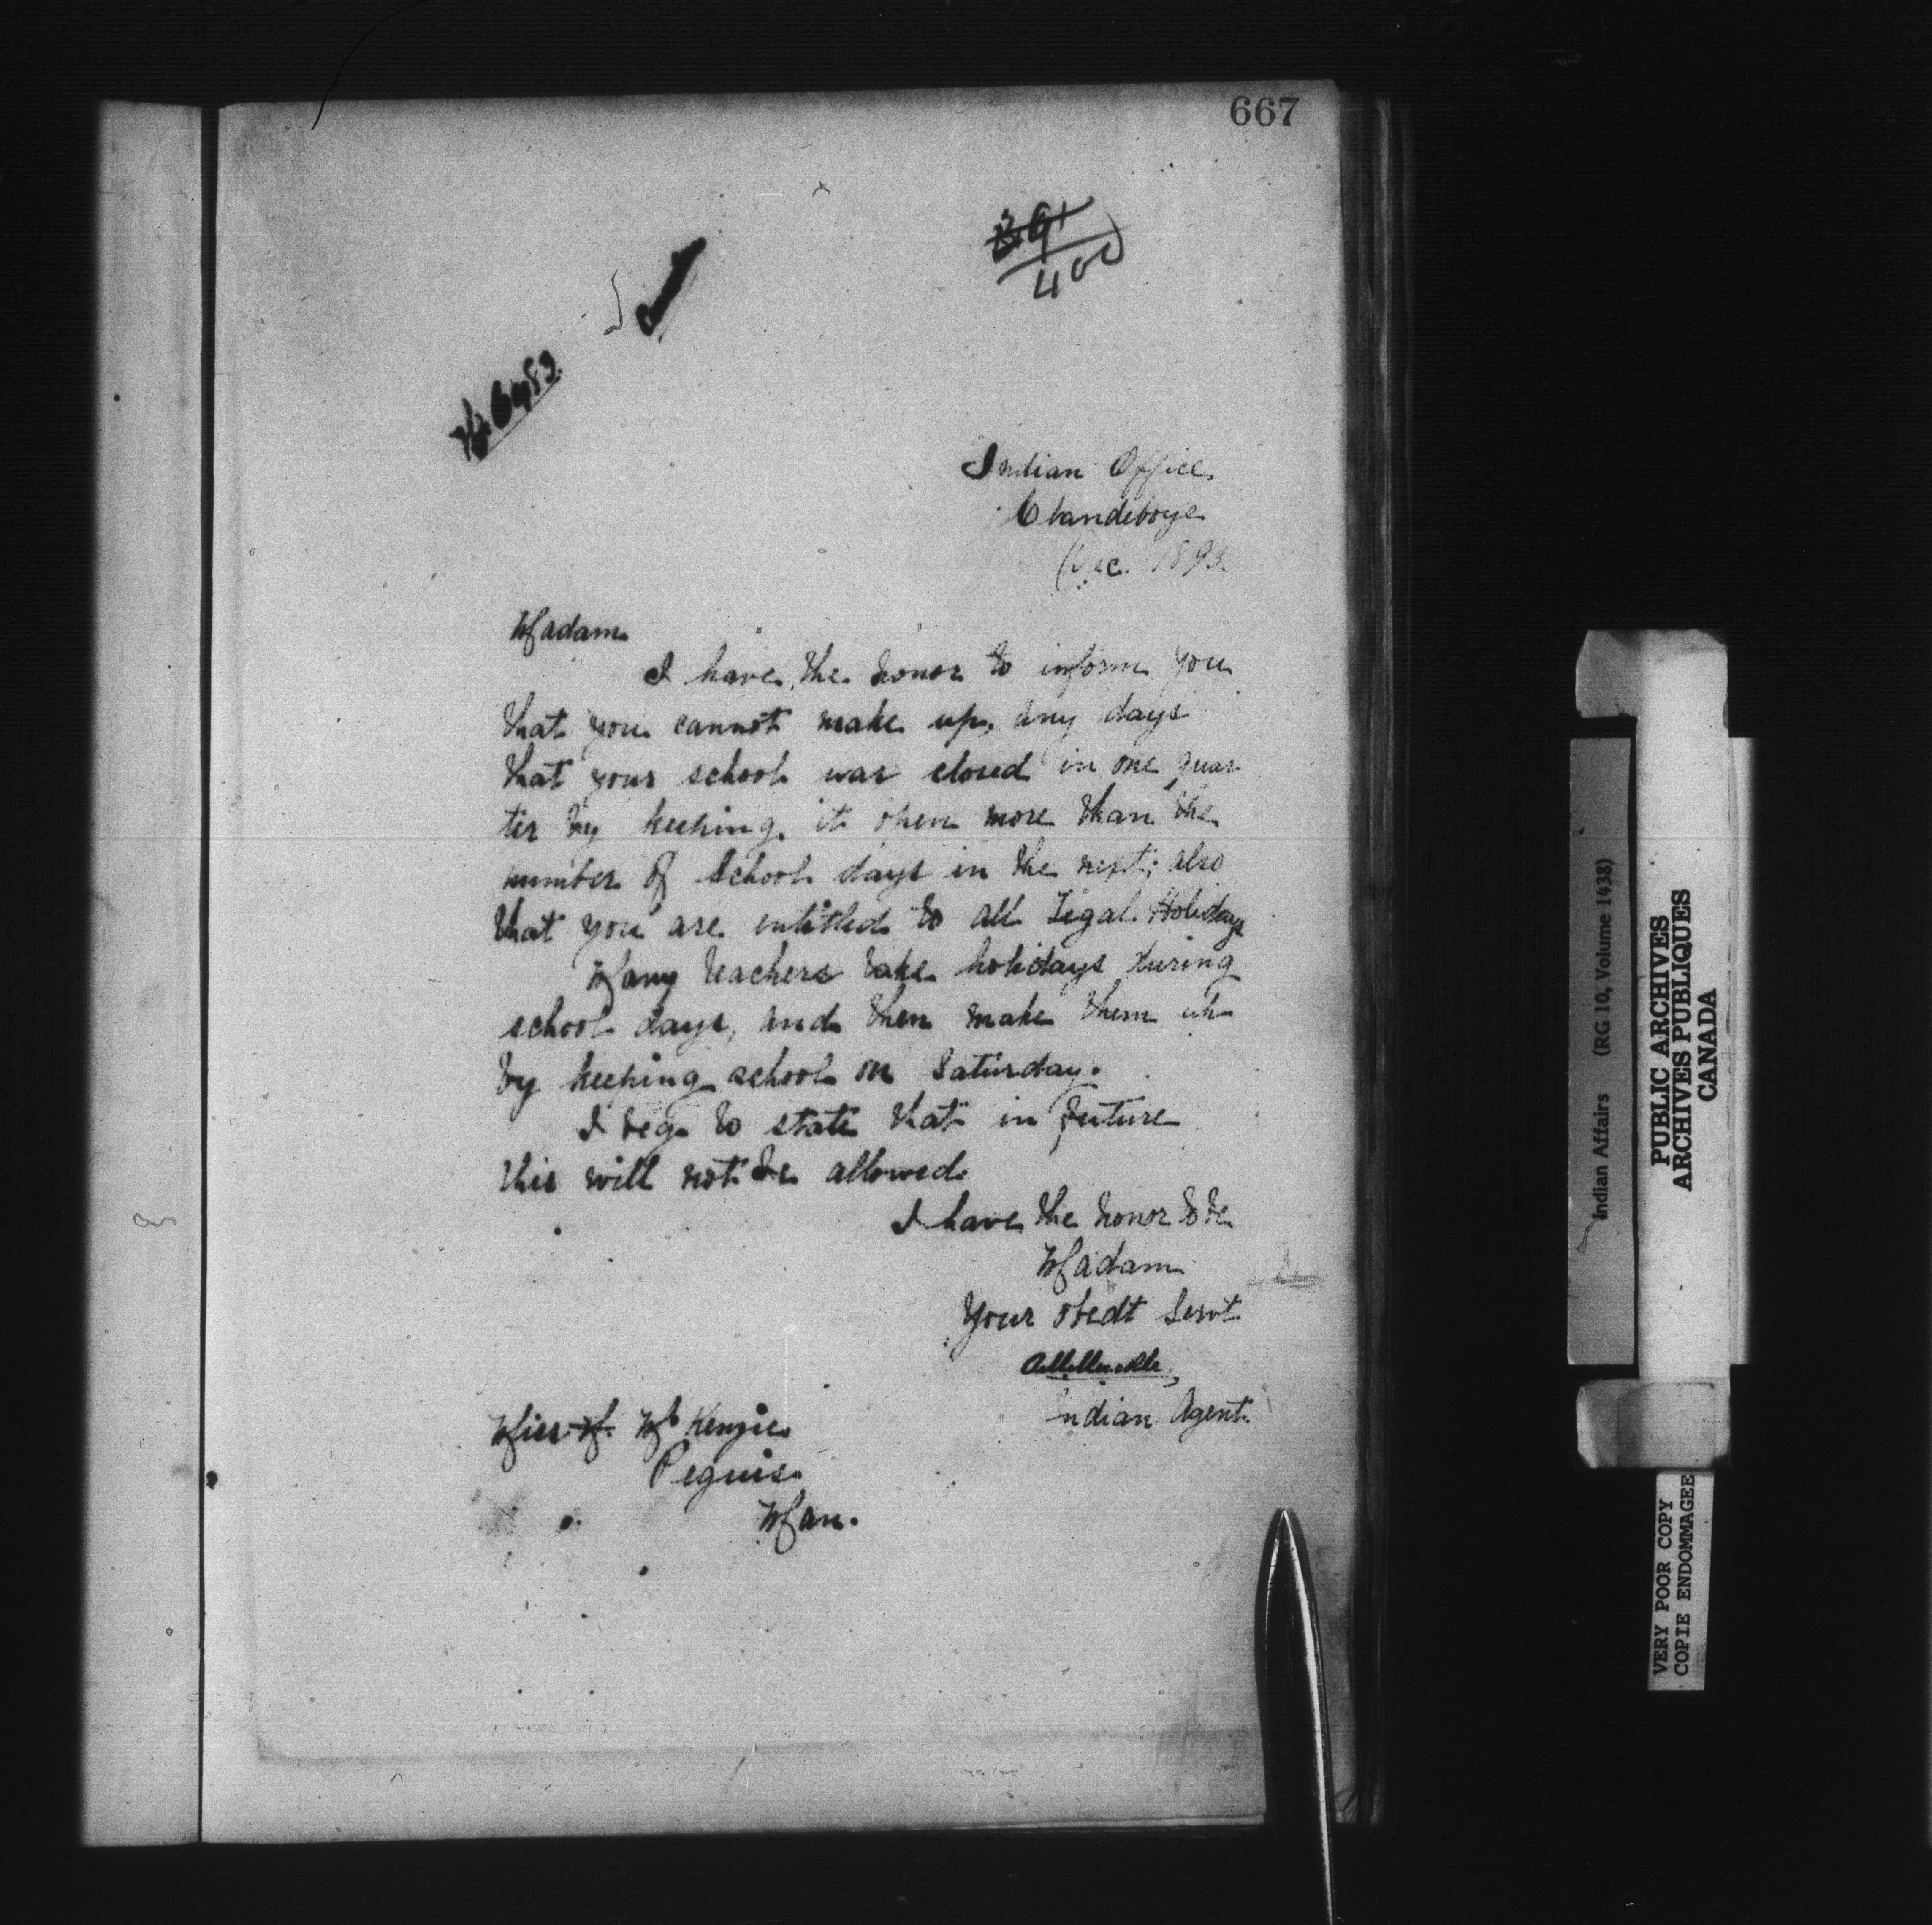 667
400
Indian Office
Clandeboye
Dec. 1893.
Madam
I have the honor to inform you
that you cannot make up, any days
that your school was closed in one quar
ter by keeping it open more than the
number of School days in the next; also
that you are entitled to all Legal Holidays
Many teachers take holidays during
school days, and then make them up
by keeping school on Saturday.
I beg to state that in future
this will not be allowed.
I have the honor to be
Madam
Your obedt Servt
Indian Agent.
Miss McKenzie
Peguis
Man.
Indian Affairs (RG 10, Volume 1438)
PUBLIC ARCHIVES
ARCHIVES PUBLIQUES
CANADA
VERY POOR COPY
COPIE ENDOMMAGEE